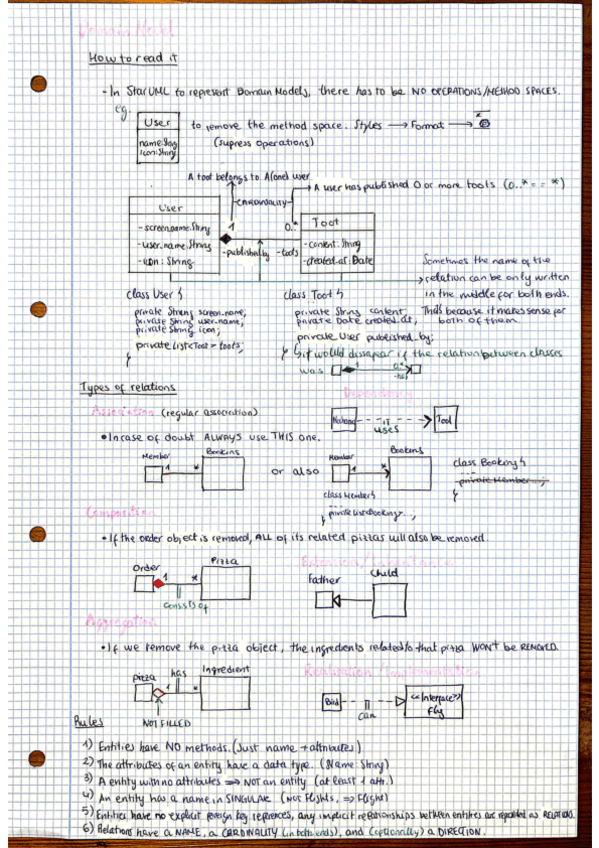 Domain Model
How to read it
- In StarUML to represent Domain Models, there has to be NO OPERATIONS/METHOD SPACES.
eg.
User
name: Stag
icon: String
to remove the method space. Styles → Format →
(supress operations)
A toot belongs to A (one) user
CARDINALITY
A user has published 0 or more toots (0..* == *)
User
- screen.name: String
- user.name: String
- icon: String
1
0..*
- published.by
- toots
Toot
- content: String
- created.at: Date
Sometimes the name of the
relation can be only written
in the middle for both ends.
That's because it makes sense for
both of them
class User {
private String screen.name;
private String user.name;
private String icon;
private List<Toot> toots;
}
class Toot {
private String content,
private Date created.at,
private User published by;
} it would disapear if the relation between classes
was
1
0..*
Types of relations
Association (regular association)
• In case of doubt ALWAYS use THIS one.
Dependency
Tool
uses
Member
1
*
Bookins
or also
Member
1
*
Bookins
class Booking {
private Member
}
class Member {
private List<Booking>
}
Composition
• If the order object is removed, ALL of its related pizzas will also be removed.
Order
1
*
Pizza
consists of
Father
Child
Aggregation
• If we remove the pizza object, the ingredients related to that pizza WON'T be REMOVED.
pizza
1
has
*
Ingredient
NOT FILLED
Realization / Implementation
Bird
can
<<Interface>>
Fly
Rules
1) Entities have NO methods. (Just name + attributes)
2) The attributes of an entity have a data type. (Name: String)
3) A entity with no attributes ⇒ NOT an entity (at least 1 attr.)
4) An entity has a name in SINGULAR (NOT Flights, ⇒ Flight)
5) Entities have no explicit foreign key references, any implicit relationships between entities are represented as RELATIONS.
6) Relations have a NAME, a CARDINALITY (in both ends), and (optionally) a DIRECTION.